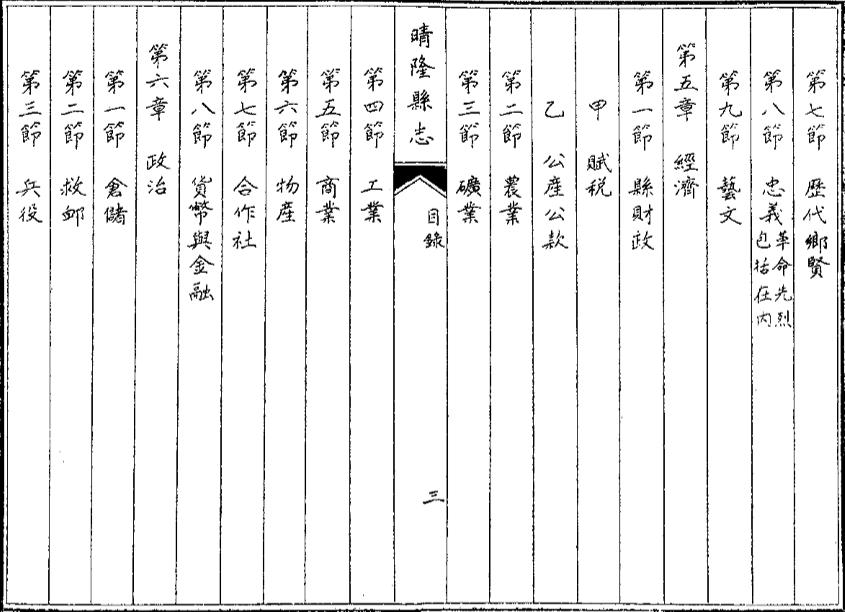 第七節　歷代鄉賢
第八節　忠義革命先烈包括在內
第九節　藝文
第五章　經濟
第一節　縣財政
甲　賦稅
乙　公產公款
第二節　農業
第三節　礦業
晴隆縣志　目錄　三
第四節　工業
第五節　商業
第六節　物產
第七節　合作社
第八節　貨幣與金融
第六章　政治
第一節　倉儲
第二節　救卹
第三節　兵役